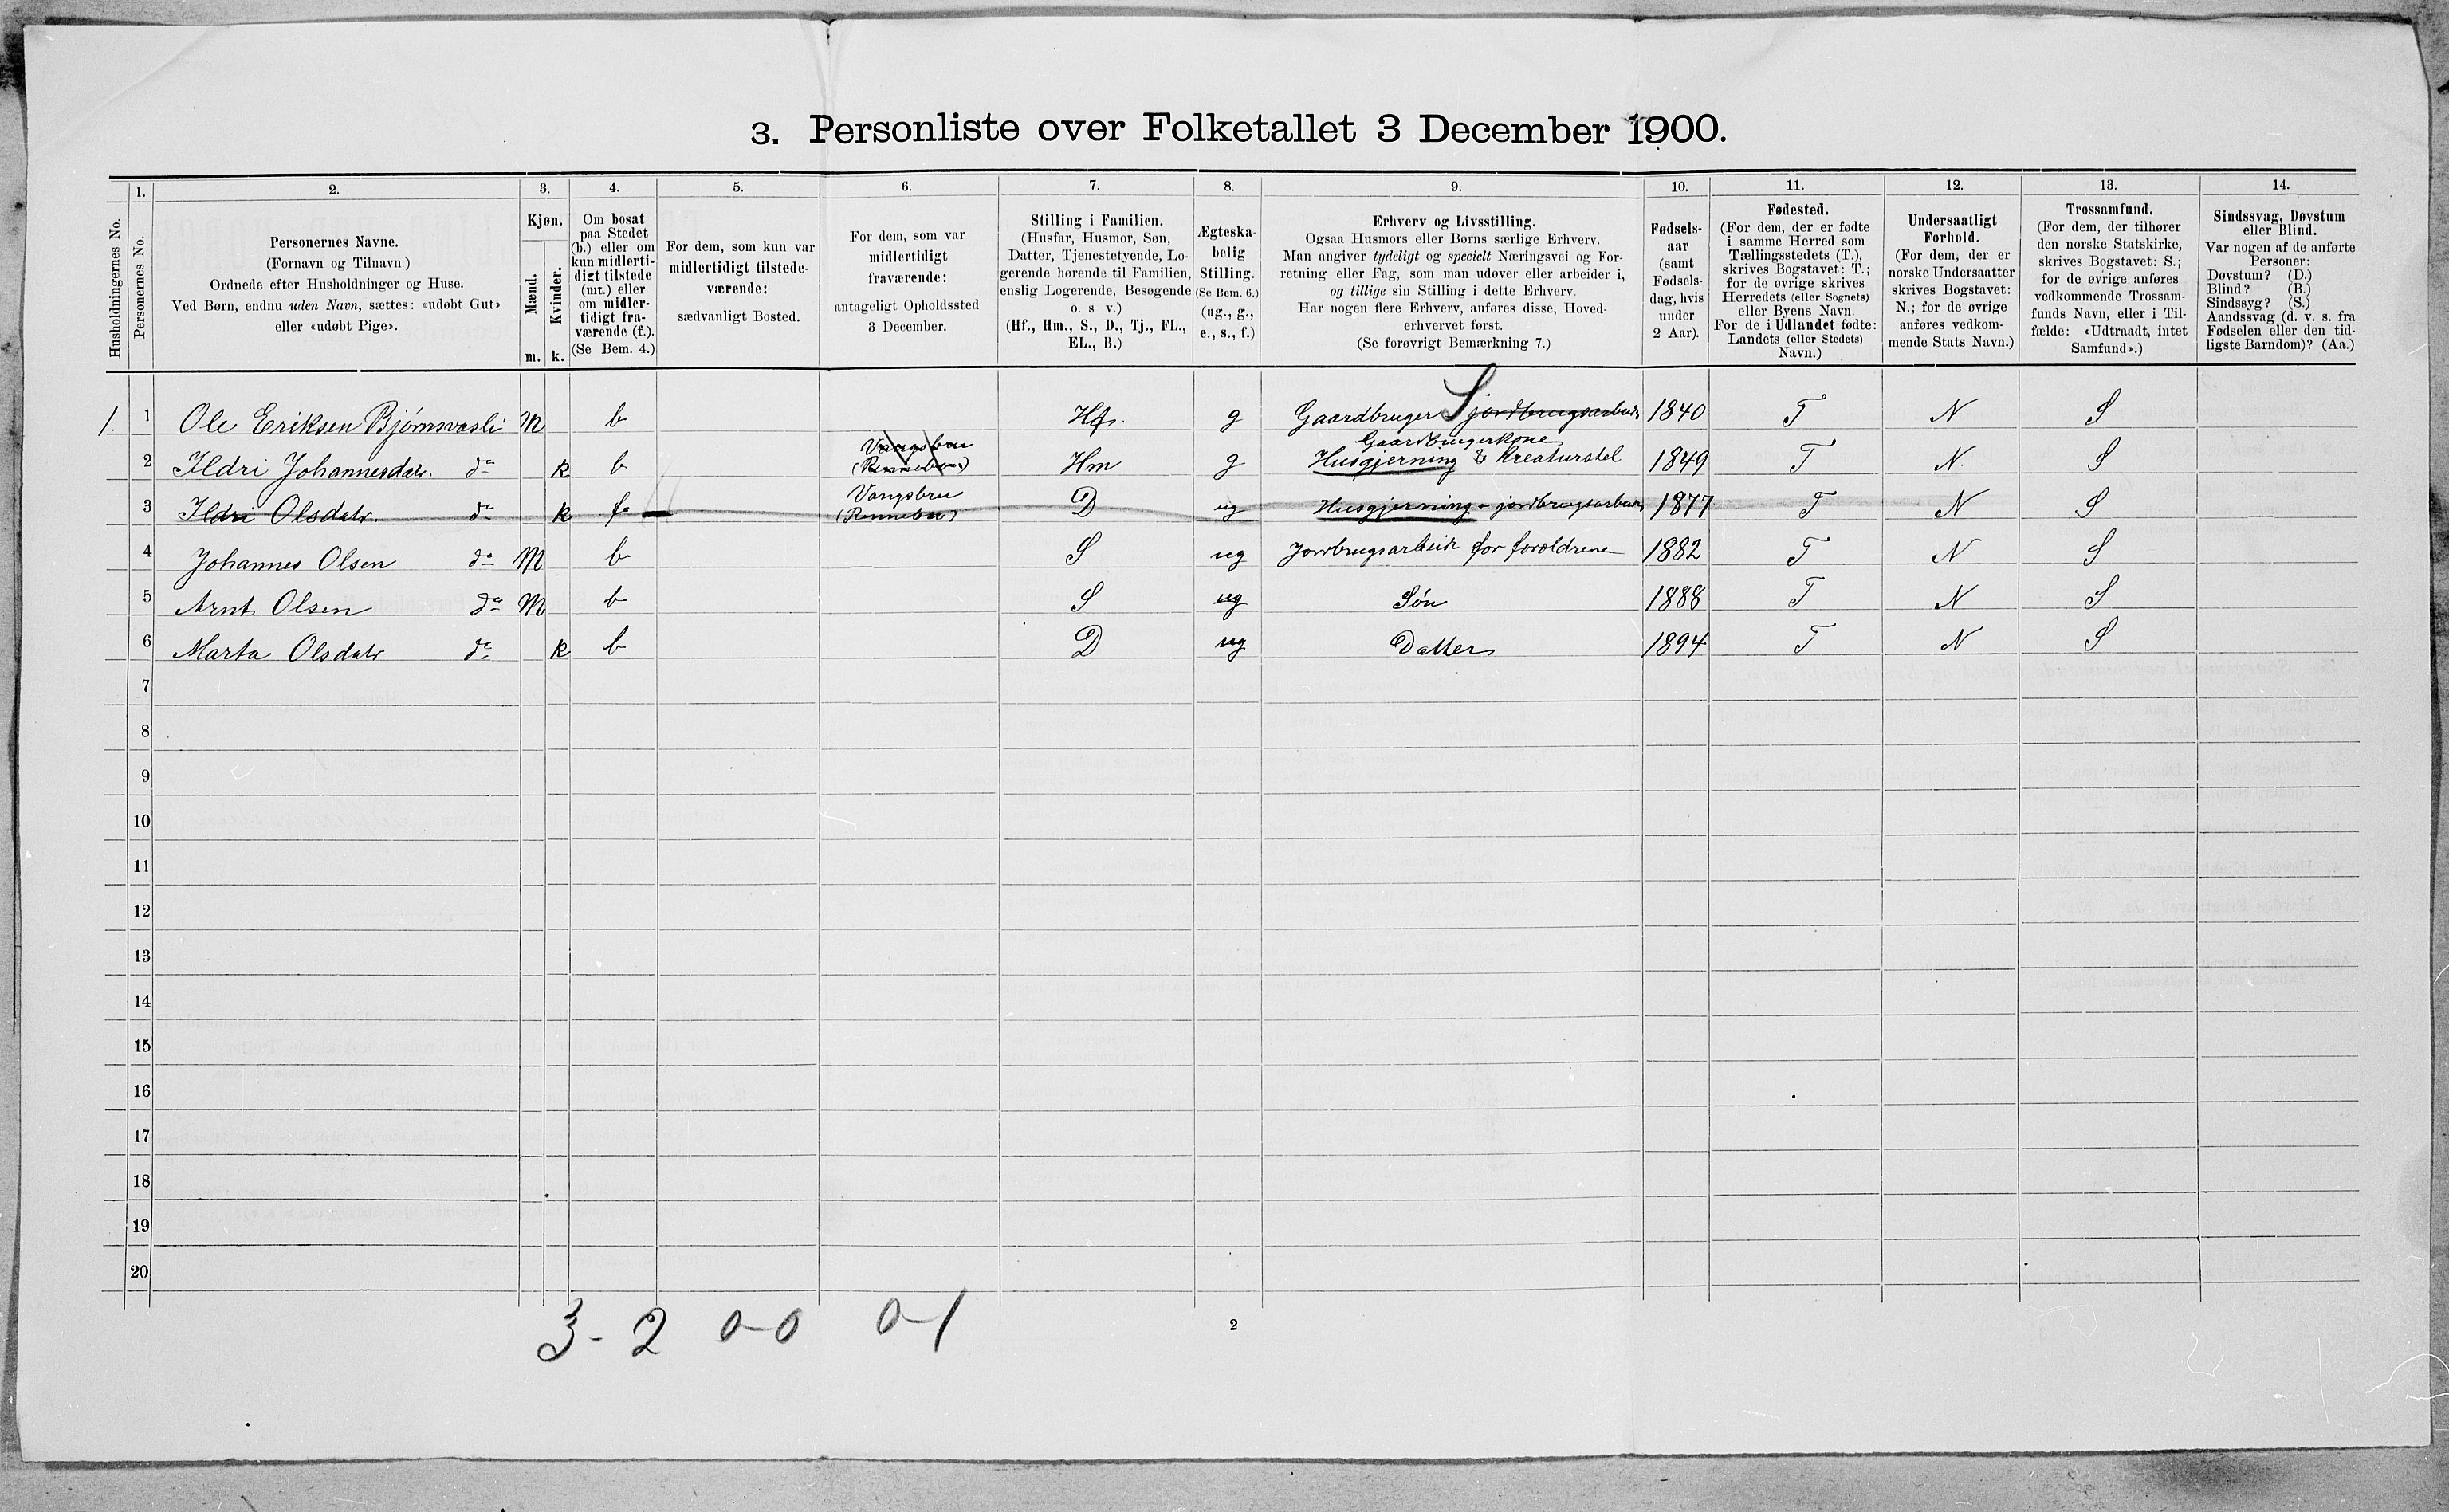 3. Personliste over Folketallet 3 December 1900.
1. 2. 3. 4. 5. 6. 7. 8. 9. 10. 11. 12. 13. 14.
Husholdningernes No.
Personernes No.
Personernes Navne.
(Fornavn og Tilnavn.)
Ordnede efter Husholdninger og Huse.
Ved Børn, endnu uden Navn, sættes: «udøbt Gut»
eller «udøbt Pige».
Kjøn.
Mænd.
Kvinder.
m. k.
Om bosat
paa Stedet
(b.) eller om
kun midlerti-
digt tilstede
(mt.) eller
om midler-
tidigt fra-
værende (f.).
(Se Bem. 4.)
For dem, som kun var
midlertidigt tilstede-
værende:
sædvanligt Bosted.
For dem, som var
midlertidigt
fraværende:
antageligt Opholdssted
3 December.
Stilling i Familien.
(Husfar, Husmor, Søn,
Datter, Tjenestetyende, Lo-
gerende hørende til Familien,
enslig Logerende, Besøgende
o. s v.)
(Hf., Hm., S., D., Tj., FL.,
EL., B.)
Ægteska-
belig
Stilling.
(Se Bem. 6.)
(ug., g.,
e., s., f.)
Erhverv og Livsstilling.
Ogsaa Husmors eller Børns særlige Erhverv.
Man angiver tydeligt og specielt Næringsvei og For-
retning eller Fag, som man udøver eller arbeider i,
og tillige sin Stilling i dette Erhverv.
Har nogen flere Erhverv, anføres disse, Hoved-
erhvervet først.
(Se forøvrigt Bemærkning 7.)
Fødsels-
aar
(samt
Fødsels-
dag, hvis
under
2 Aar).
Fødested.
(For dem, der er fødte
i samme Herred som
Tællingsstedets (T.),
skrives Bogstavet: T.;
for de øvrige skrives
Herredets (eller Sognets)
eller Byens Navn.
For de i Udlandet fødte:
Landets (eller Stedets)
Navn.)
Undersaatligt
Forhold.
(For dem, der er
norske Undersaatter
skrives Bogstavet:
N.; for de øvrige
anføres vedkom-
mende Stats Navn.)
Trossamfund.
(For dem, der tilhører
den norske Statskirke,
skrives Bogstavet: S.;
for de øvrige anføres
vedkommende Trossam-
funds Navn, eller i Til-
fælde: «Udtraadt, intet
Samfund».)
Sindssvag, Døvstum
eller Blind.
Var nogen af de anførte
Personer:
Døvstum? (D.)
Blind? (B.)
Sindssyg? (S.)
Aandssvag (d. v. s. fra
Fødselen eller den tid-
ligste Barndom)? (Aa.)
1. 1 Ole Eriksen Bjørnsvasli M b Hf. g Gaardbruger S jordbrugsarbeide 1840 T N S
Vangsbru Gaardbrugerkone
2 Ildri Johannesdatr. do k b (Rennebu) Hm g Husgjerning & kreaturstel 1849 T N. S
Vangsbru
3 Ildri Olsdatr. do k f (Rennebu) D ug Husgjerning - jordbrugsarbeide 1877 T N S
4 Johannes Olsen do M b S ug Jordbrugsarbeide for foroldrene 1882 T N S
5 Arnt Olsen do M b S ug Søn 1888 T N S
6 Marta Olsdatr do k b D ug Datter 1894 T N S
7
8
9
10
11
12
13
14
15
16
17
18
19
20
3 - 2 0-0 0-1
2